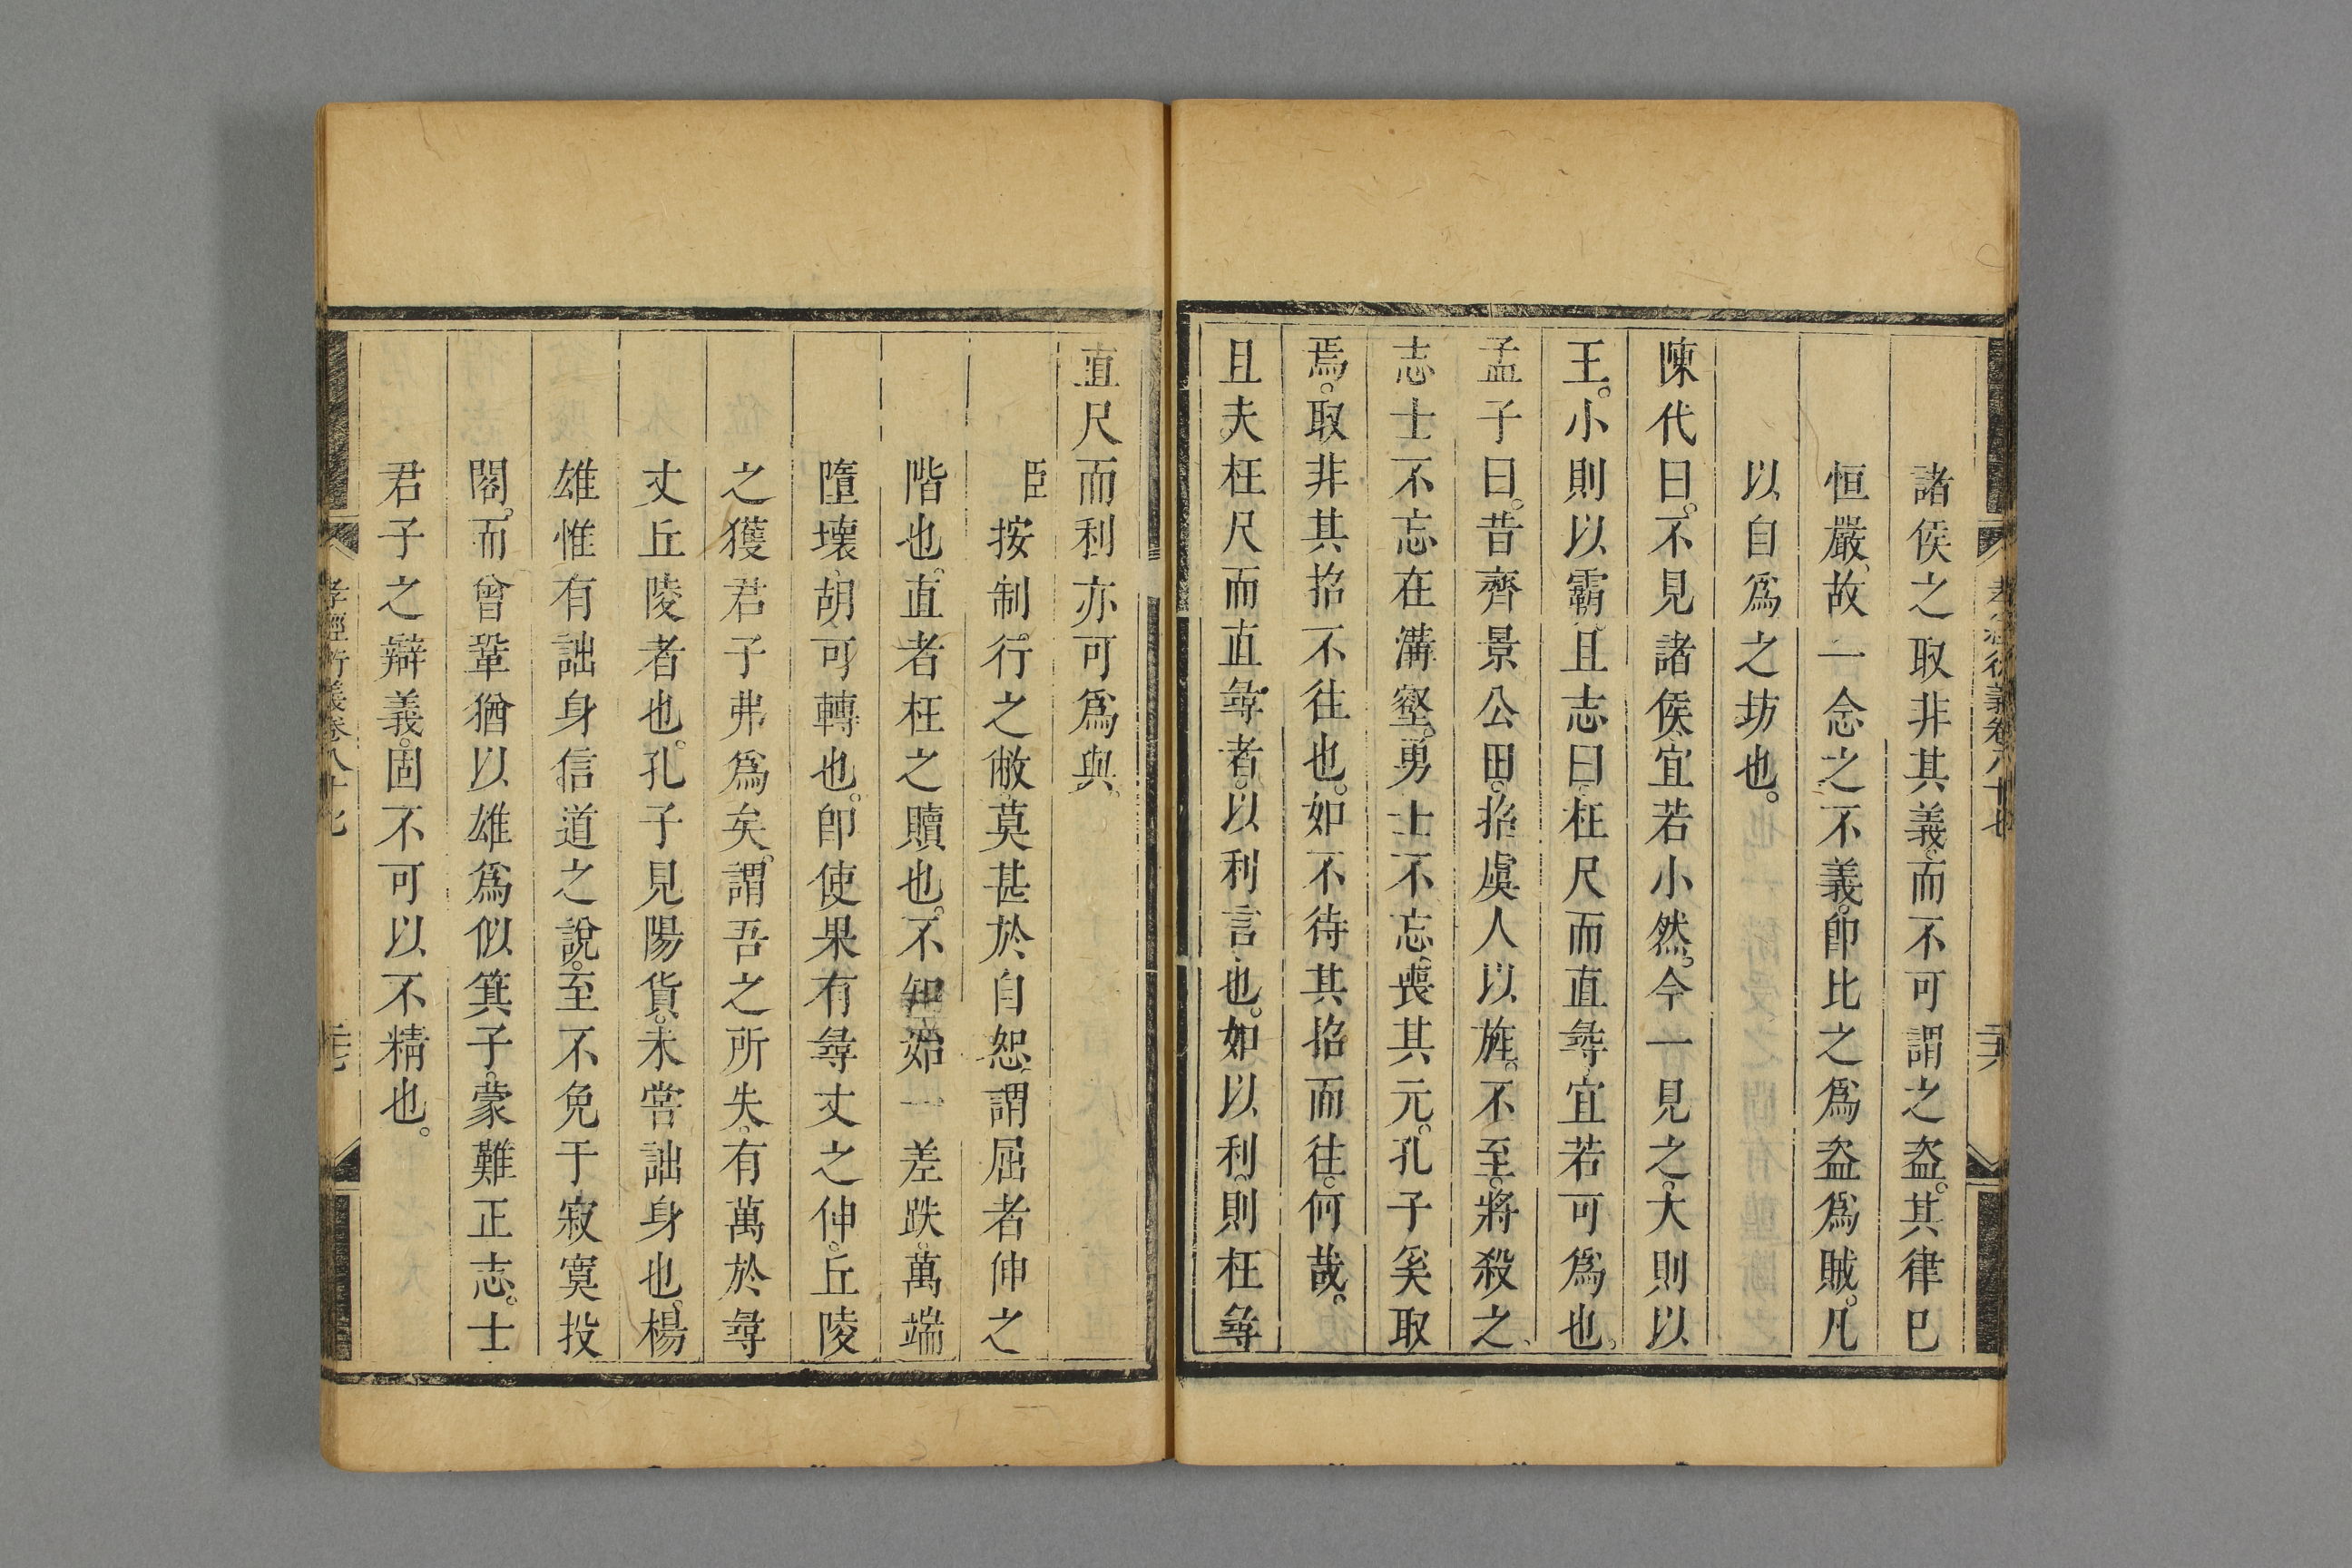 諸侯之取非其義。而不可謂之盗。其律已
恒嚴、故一念之不義。卽比之爲盗爲賊。凡
以自爲之坊也。
陳代曰。不見諸侯。宜若小然。今一見之。大則以
王。小則以霸。且志曰。枉尺而直尋。宜若可爲也。
孟子曰。昔齊景公田。招虞人以旌。不至。將殺之、
志士不忘在溝壑。勇士不忘喪其元。孔子奚取
焉。取非其招不往也。如不待其招而往。何哉。
且夫枉尺而直尋者。以利言也。如以利。則枉尋
直尺而利亦可爲與。
臣按制行之敝莫甚於自恕。謂屈者伸之
階也。直者枉之贖也。不知始一差跌。萬端
墮壞。胡可轉也。卽使果有尋丈之伸。丘陵
之獲。君子弗爲矣。謂吾之所失。有萬於尋
丈丘陵者也。孔子見陽貨。未嘗詘身也。楊
雄惟有詘身信道之說。至不免于寂寞投
閣。而曾鞏猶以雄爲似箕子。蒙難正志。士
君子之辯義。固不可以不精也。
孝經衍義卷八十七
二六
孝經衍義卷八十七
二七